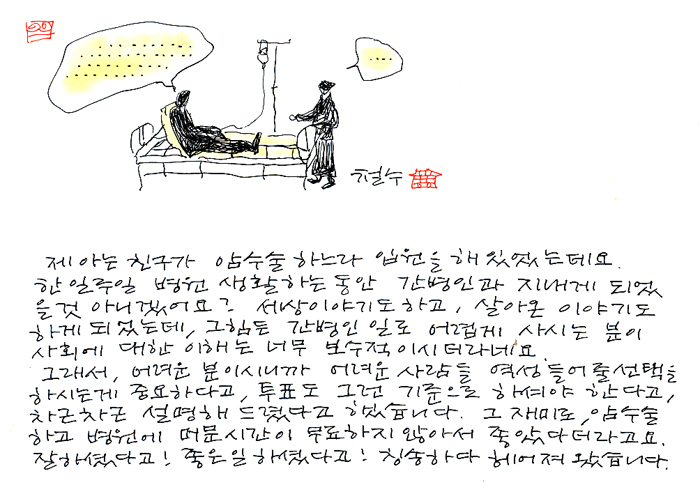 철수
제 아는 친구가 암수술 하느라 입원을 해 있었는데요.
한 일주일 병원 생활하는 동안 간병인과 지내게 되었
을것 아니겠어요? 세상이야기도 하고, 살아온 이야기도
하게 되었는데, 그 힘든 간병인 일로 어렵게 사시는 분이
사회에 대한 이해는 너무 보수적이시더라네요.
그래서, 어려운 분이시니까 어려운 사람들 역성들어줄선택을
하시는게 중요하다고, 투표도 그런 기준으로 하셔야 한다고,
차근차근 설명해 드렸다고 했습니다. 그 재미로, 암수술
하고 병원에 머문시간이 무료하지 않아서 좋았다더라고요.
잘하셨다고! 좋은일 하셨다고! 칭송하다 헤어져 왔습니다.